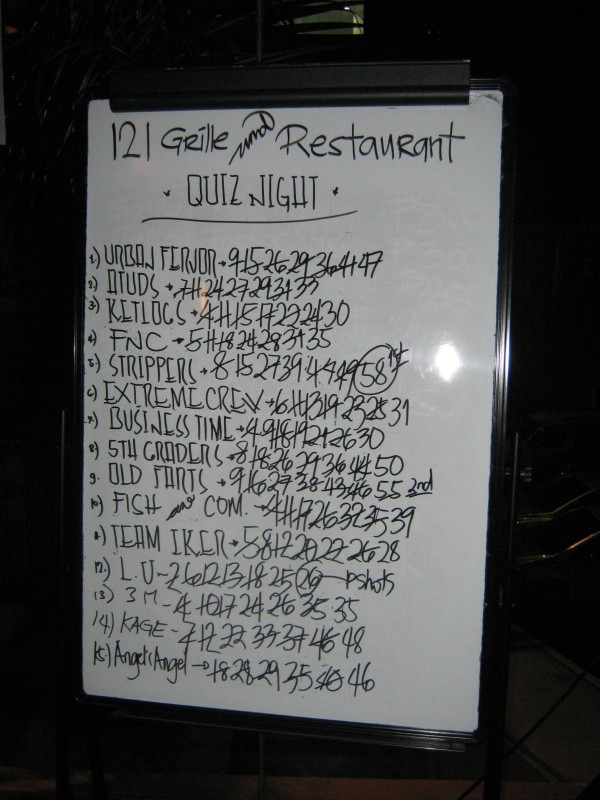 121 Grille and Restaurant
QUIZ NIGHT
1) URBAN FERVOR 9 15 26 29 36 41 47
2) OTUDS 7 11 24 27 29 31 33
3) KETLOGS 4 11 15 17 22 24 30
4) FNC 5 11 18 24 28 31 35
5) STRIPPERS 8 15 27 39 44 49 58 1st
6) EXTREME CREW 6 11 13 19 23 28 31
7) BUSINESS TIME 4 9 18 19 21 26 30
8) 5TH GRADERS 8 18 26 29 36 44 50
9. OLD FARTS 9 16 27 38 43 46 55 2nd
10) FISH and COM. 4 11 17 26 32 35 39
11) TEAM IKER 5 8 12 20 22 26 28
12) L.U 2 6 12 13 18 25 26 pshots
13) 3M 4 10 17 24 26 35 35
14) KAGE 7 17 22 33 37 46 48
15) Angel 18 28 29 35 40 46